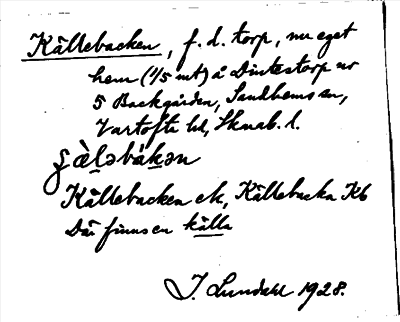 Källebacken, f. d. torp, nu eget
hem (1/5 mt) å Dintestorp nr
5 Backgården, Sandhems sn,
Vartofta hd, Skarab. l.
Källebacken ek, Källebacka Kb
Där finns en källa
J. Lundahl 1928.